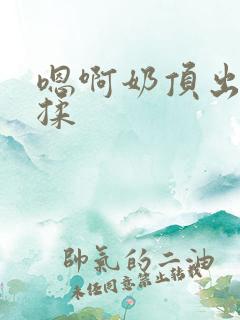 嗯啊奶頂出
揉
帥氣的二油
未经同意禁止转载